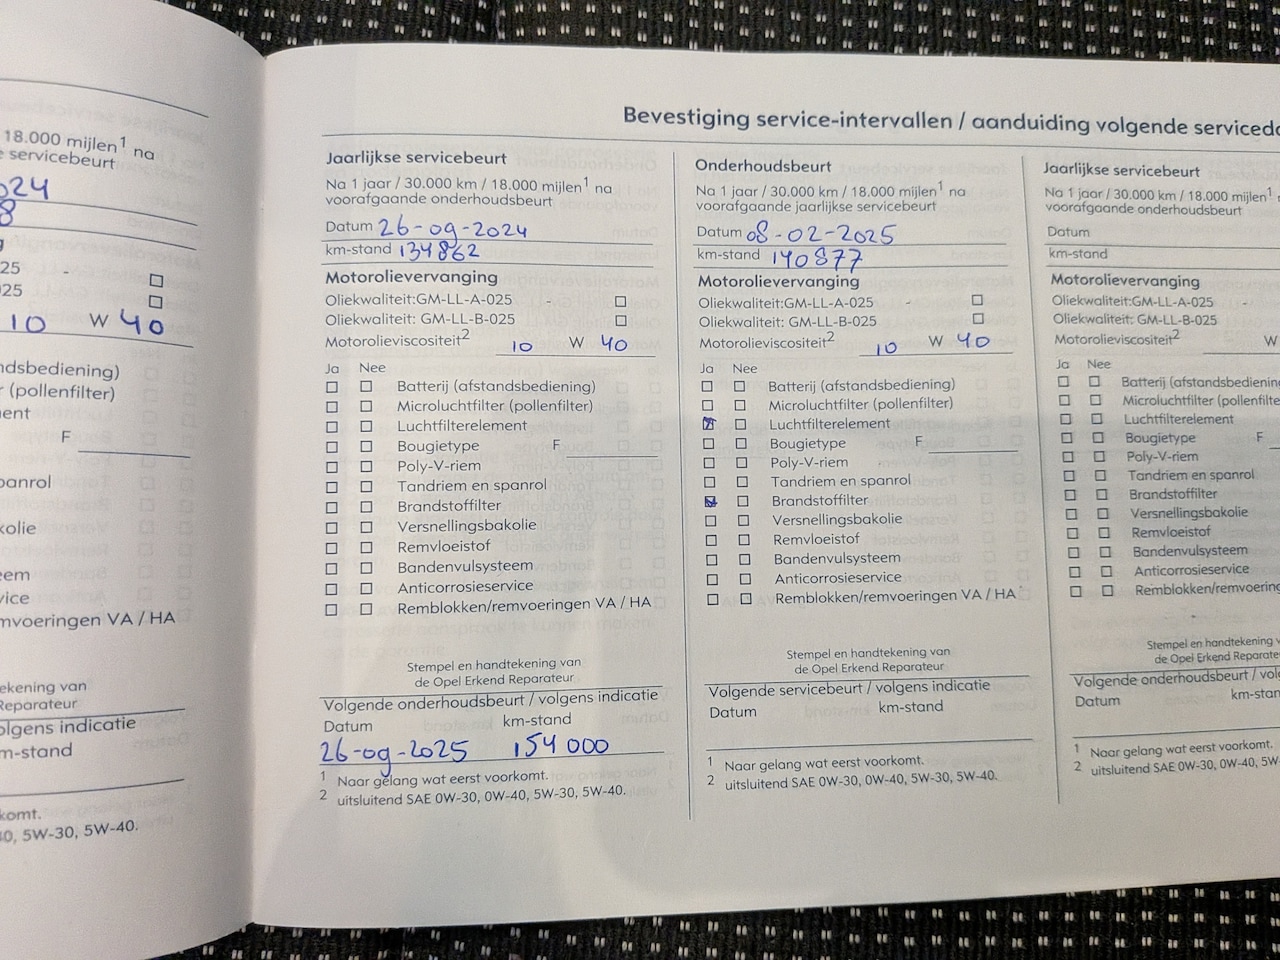 18.000 mijlen1 na
servicebeurt
024
8
25
025
10 W 40
(pollenfilter)
F
VA / HA
Reparateur
30, 5W-30, 5W-40.
Bevestiging service-intervallen / aanduiding volgende
Jaarlijkse servicebeurt
Na 1 jaar / 30.000 km / 18.000 mijlen1 na
voorafgaande onderhoudsbeurt
Datum 26-09-2024
km-stand 134862
Motorolievervanging
Oliekwaliteit:GM-LL-A-025 -
Oliekwaliteit: GM-LL-B-025
Motorolieviscositeit2 10 W 40
Ja Nee
Batterij (afstandsbediening)
Microluchtfilter (pollenfilter)
Luchtfilterelement
Bougietype F
Poly-V-riem
Tandriem en spanrol
Brandstoffilter
Versnellingsbakolie
Remvloeistof
Bandenvulsysteem
Anticorrosieservice
Remblokken/remvoeringen VA / HA
Stempel en handtekening van
de Opel Erkend Reparateur
Volgende onderhoudsbeurt / volgens indicatie
Datum km-stand
26-09-2025 154000
1 Naar gelang wat eerst voorkomt.
2 uitsluitend SAE 0W-30, 0W-40, 5W-30, 5W-40.
Onderhoudsbeurt
Na 1 jaar / 30.000 km / 18.000 mijlen1 na
voorafgaande jaarlijkse servicebeurt
Datum 08-02-2025
km-stand 140877
Motorolievervanging
Oliekwaliteit:GM-LL-A-025 -
Oliekwaliteit: GM-LL-B-025
Motorolieviscositeit2 10 W 40
Ja Nee
Batterij (afstandsbediening)
Microluchtfilter (pollenfilter)
Luchtfilterelement
Bougietype F
Poly-V-riem
Tandriem en spanrol
Brandstoffilter
Versnellingsbakolie
Remvloeistof
Bandenvulsysteem
Anticorrosieservice
Remblokken/remvoeringen VA / HA
Stempel en handtekening van
de Opel Erkend Reparateur
Volgende servicebeurt / volgens indicatie
Datum km-stand
1 Naar gelang wat eerst voorkomt.
2 uitsluitend SAE 0W-30, 0W-40, 5W-30, 5W-40.
Jaarlijkse servicebeurt
Na 1 jaar / 30.000 km / 18.000 mijlen1
voorafgaande onderhoudsbeurt
Datum
km-stand
Motorolievervanging
Oliekwaliteit:GM-LL-A-025 -
Oliekwaliteit: GM-LL-B-025
Motorolieviscositeit2 W
Ja Nee
Batterij
Microluchtfilter
Luchtfilterelement
Bougietype F
Poly-V-riem
Tandriem en spanrol
Brandstoffilter
Versnellingsbakolie
Remvloeistof
Bandenvulsysteem
Anticorrosieservice
Stempel en handtekening
de Opel Erkend
Volgende onderhoudsbeurt / volgens
Datum
1 Naar gelang wat eerst voorkomt.
2 uitsluitend SAE 0W-30, 0W-40,